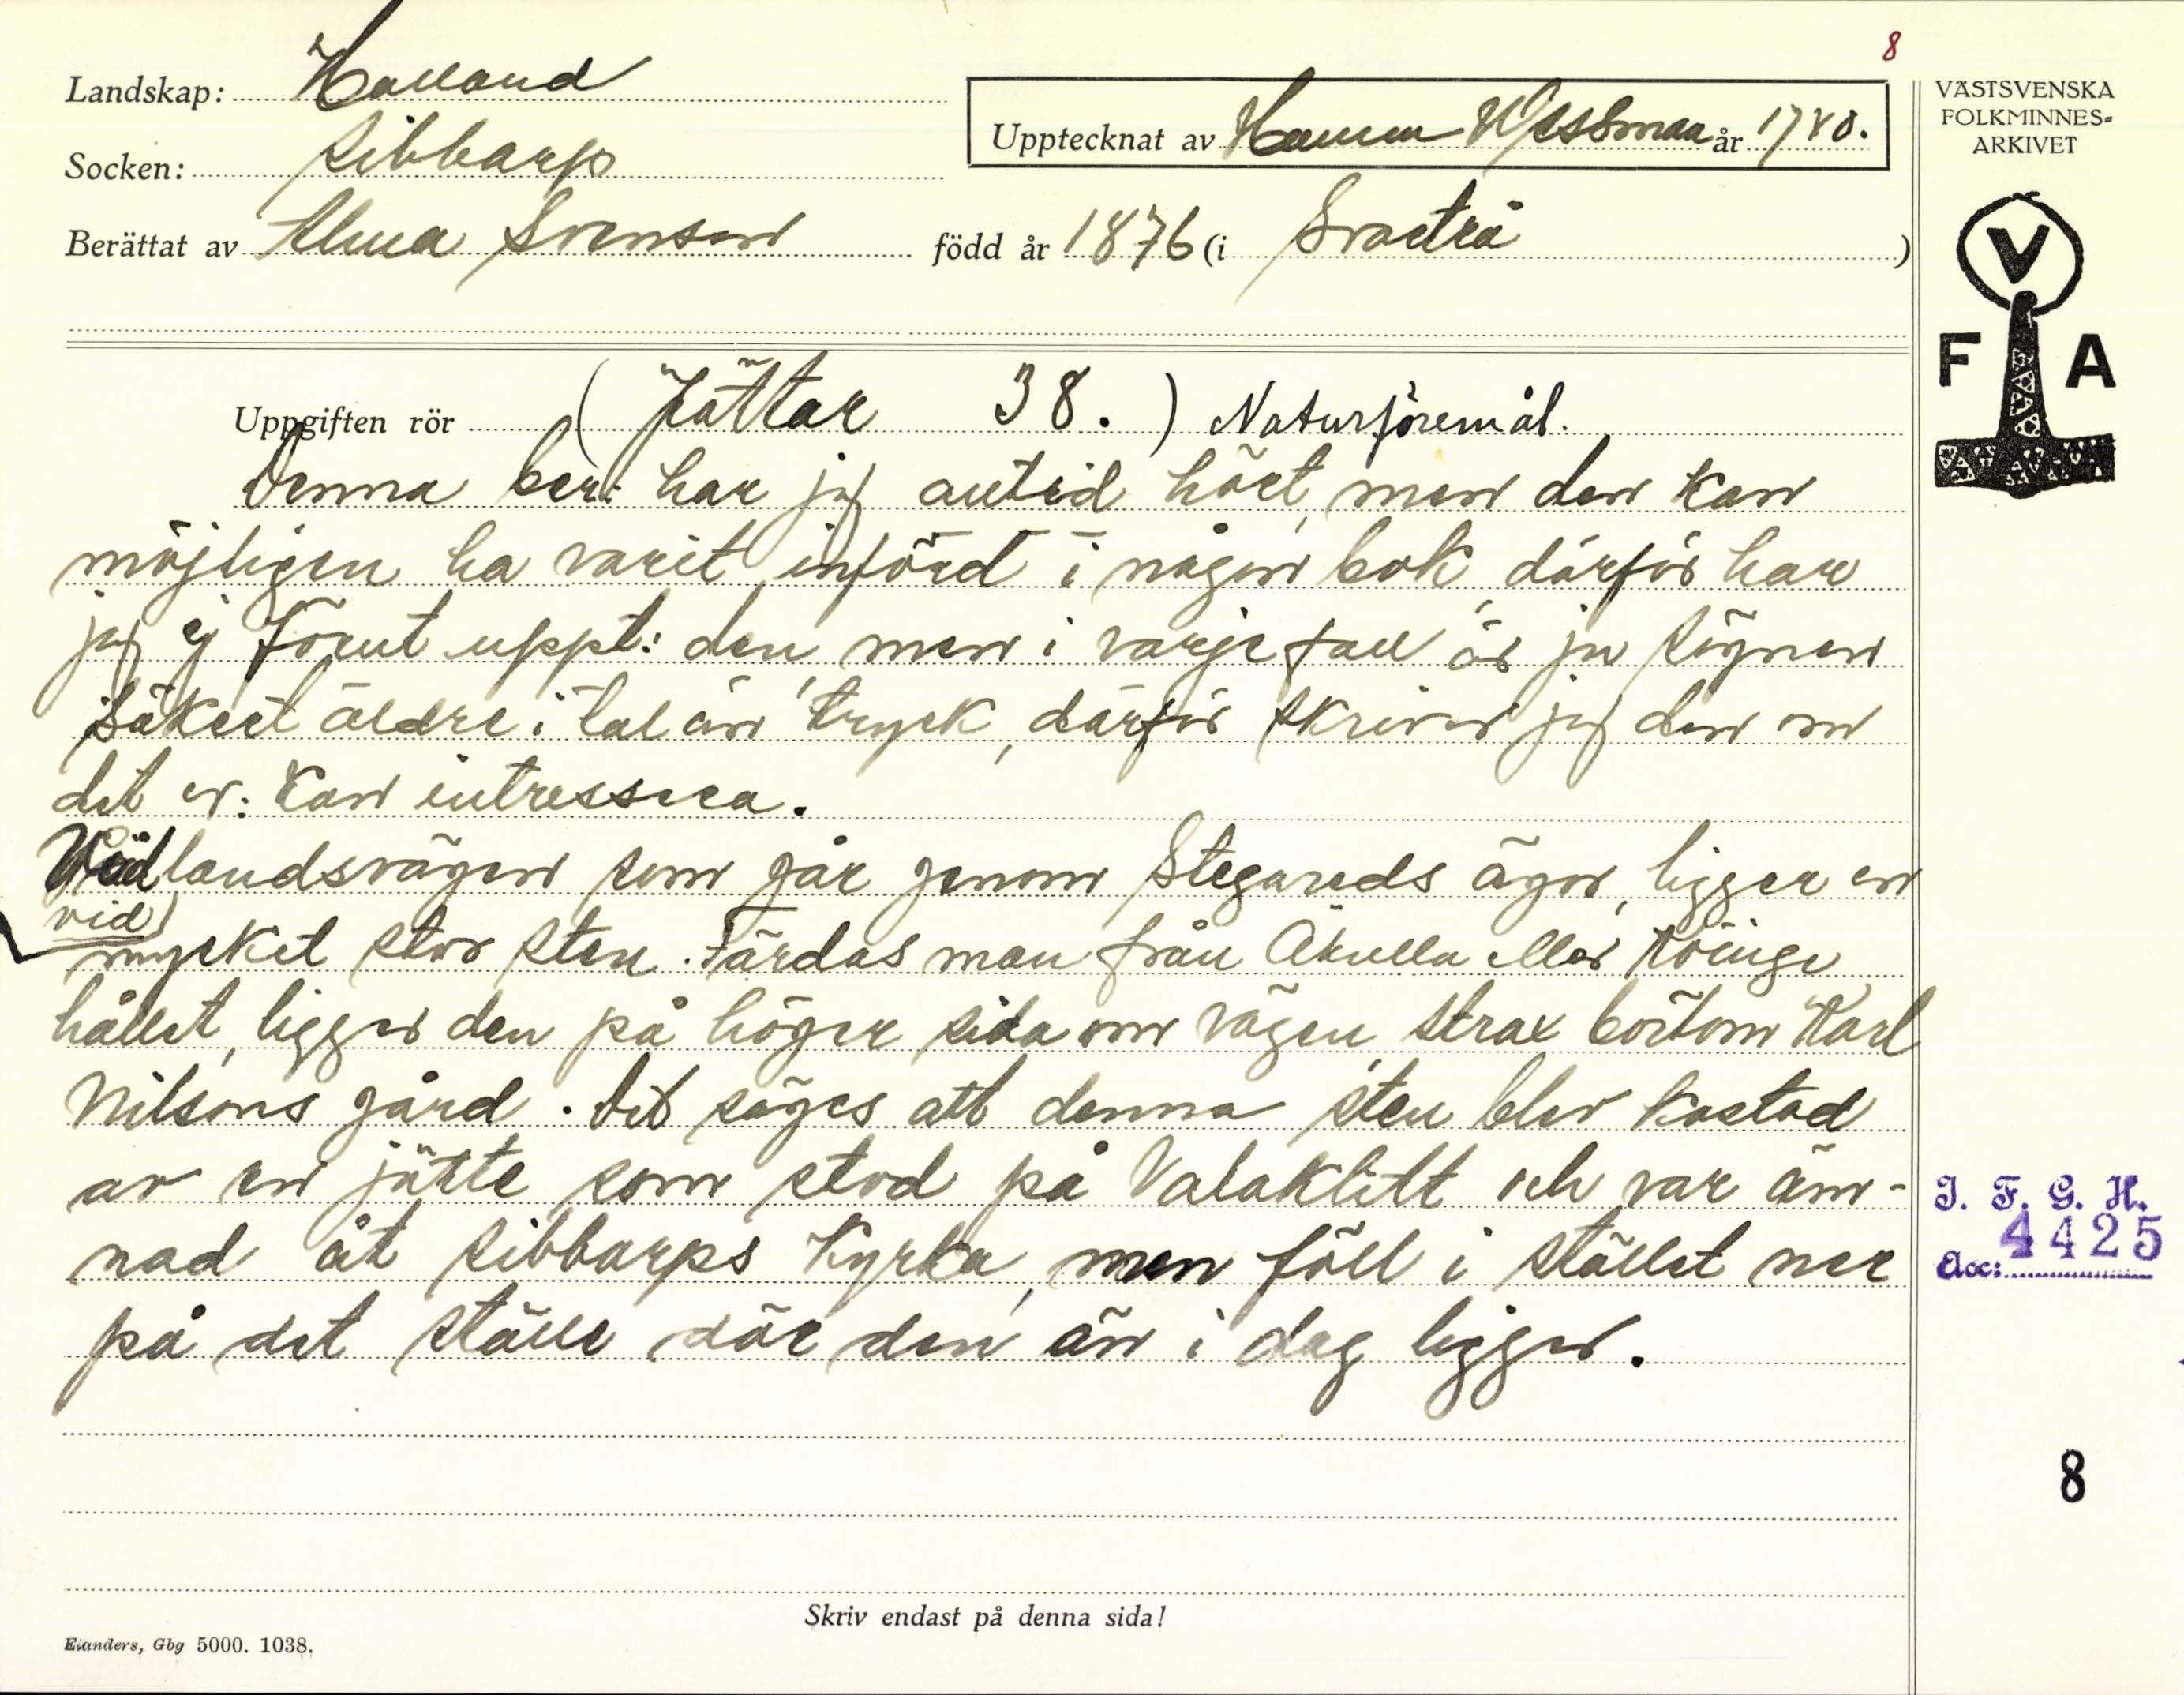 8
Landskap: Halland
Socken: Sibbarp
Upptecknat av Wessman år 1940.
Berättat av Alma Svenson född år 1876 (i Svartrå )
VÄSTSVENSKA
FOLKMINNES=
ARKIVET
V
F A
Uppgiften rör ( Jättar 38. ) Naturföremål.
Denna ber: har jag alltid hört, men den kan
möjligen ha varit införd i någon bok, därför har
jag ej förut uppt: den, men i varje fall är ju sägnen
säkert äldre i tal än tryck, därför skriver jag den om
det ev: kan intressera.
Vid landsvägen som går genom Stegareds ägor, ligger en
vid
mycket stor sten. Färdas man från Åkulla eller Köinge
hållet, ligger den på höger sida om vägen, strax bortom Karl
Nilsons gård. Det säges att denna sten blev kastad
av en jätte som stod på Valaklitt och var äm-
nad åt Sibbarps kyrka, men föll i stället ner
på det ställe där den än i dag ligger.
I. F. G. H.
Acc: 4425
8
Skriv endast på denna sida!
Elanders, Gbg 5000. 1038.